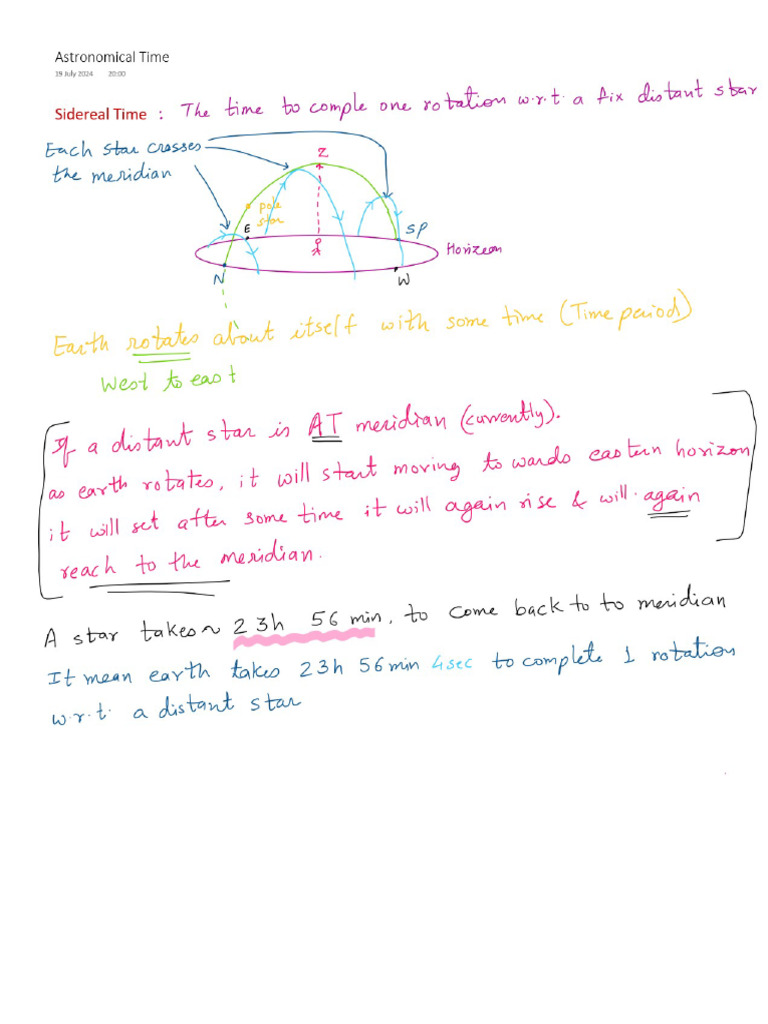 Astronomical Time
19 July 2024 20:00
Sidereal Time : The time to comple one rotation w.r.t. a fix distant star
Each star crosses
the meridian
Z
pole
star
E
SP
Horizeon
N
W
Earth rotates about itself with some time (Time period)
West to east
If a distant star is AT meridian (currently).
as earth rotates, it will start moving to wards eastern horizon
it will set after some time it will again rise & will again
reach to the meridian.
A star takes ~ 23h 56 min, to come back to to meridian
It mean earth takes 23h 56min 4sec to complete 1 rotation
w.r.t. a distant star